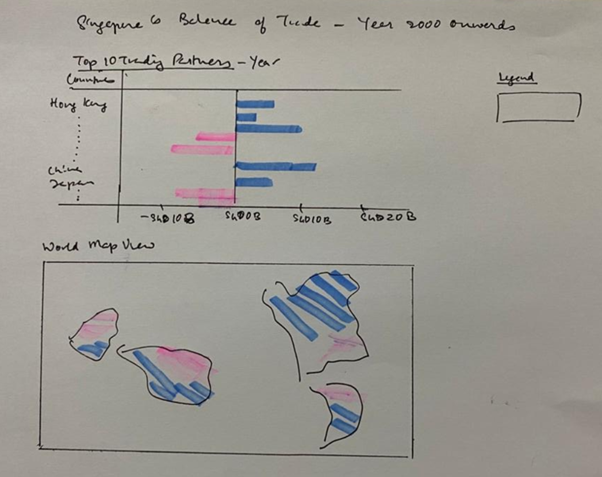 Singapore's Balance of Trade - Year 2000 onwards
Top 10 Trading Partners - Year
Countries
Legend
Hong Kong
China
Japan
-SGD10B SGD0B SGD10B SGD20B
World Map View